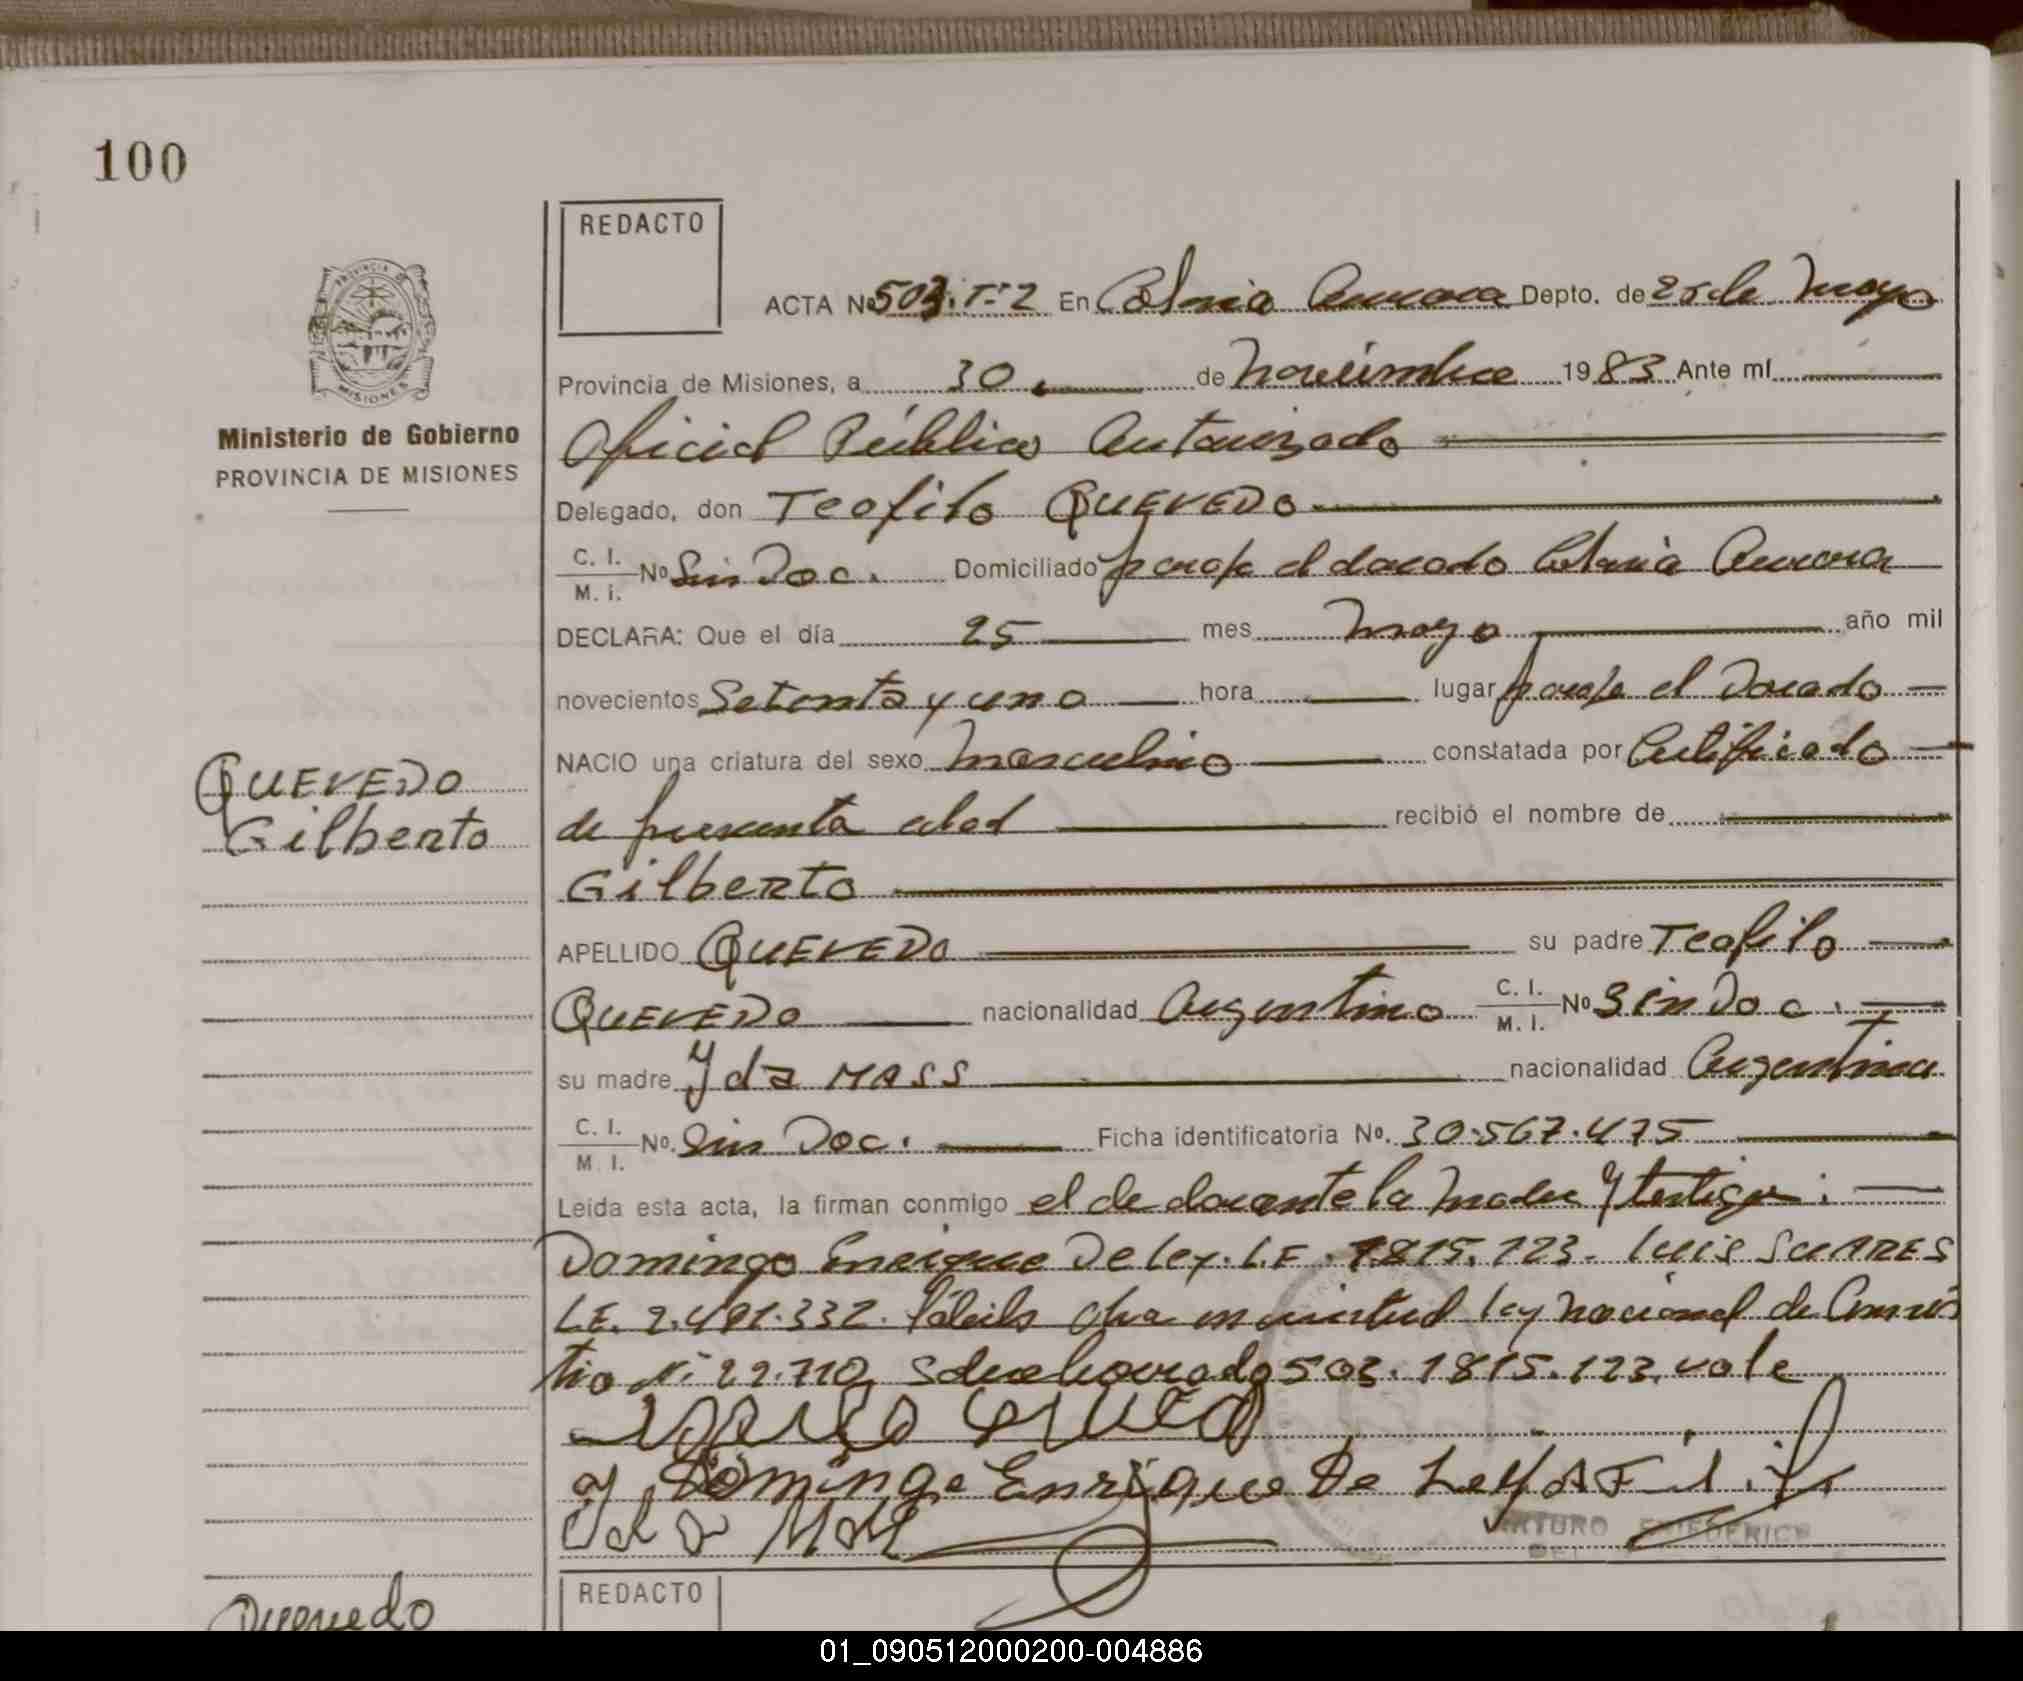 100
REDACTO
ACTA Nº 503. T=2 En Colonia Aurora Depto. de 25 de Mayo
PROVINCIA DE MISIONES
Provincia de Misiones, a 30 de Noviembre 1983 Ante mí
Ministerio de Gobierno
PROVINCIA DE MISIONES
Oficial Público Autorizado
Delegado, don Teofilo QUEVEDO
C. I.
M. I. Nº Sin Doc. Domiciliado paraje el dorado Colonia Aurora
DECLARA: Que el día 25 mes mayo año mil
novecientos Setenta y uno hora lugar paraje el Dorado
NACIO una criatura del sexo masculino constatada por Certificado
QUEVEDO
Gilberto
de presunta edad recibió el nombre de
Gilberto
APELLIDO QUEVEDO su padre Teofilo
QUEVEDO nacionalidad Argentino C. I. M. I. Nº Sin Doc.
su madre Yda MASS nacionalidad Argentina
C. I.
M. I. Nº. Sin Doc. Ficha identificatoria Nº. 30.567.475
Leida esta acta, la firman conmigo el declarante la madre y testigos:
Domingo Enrique De Ley. L.E. 1815.123. Luis SUARES
L.E. 2.491.332. en virtud ley nacional de Amnis
tia Nº 22.710, Sobreborrado 503. 1815.123. vale
Domingo Enrique De Ley
Yda Mass
ARTURO FRIEDERICH
DEL
REDACTO
Quevedo
01_090512000200-004886